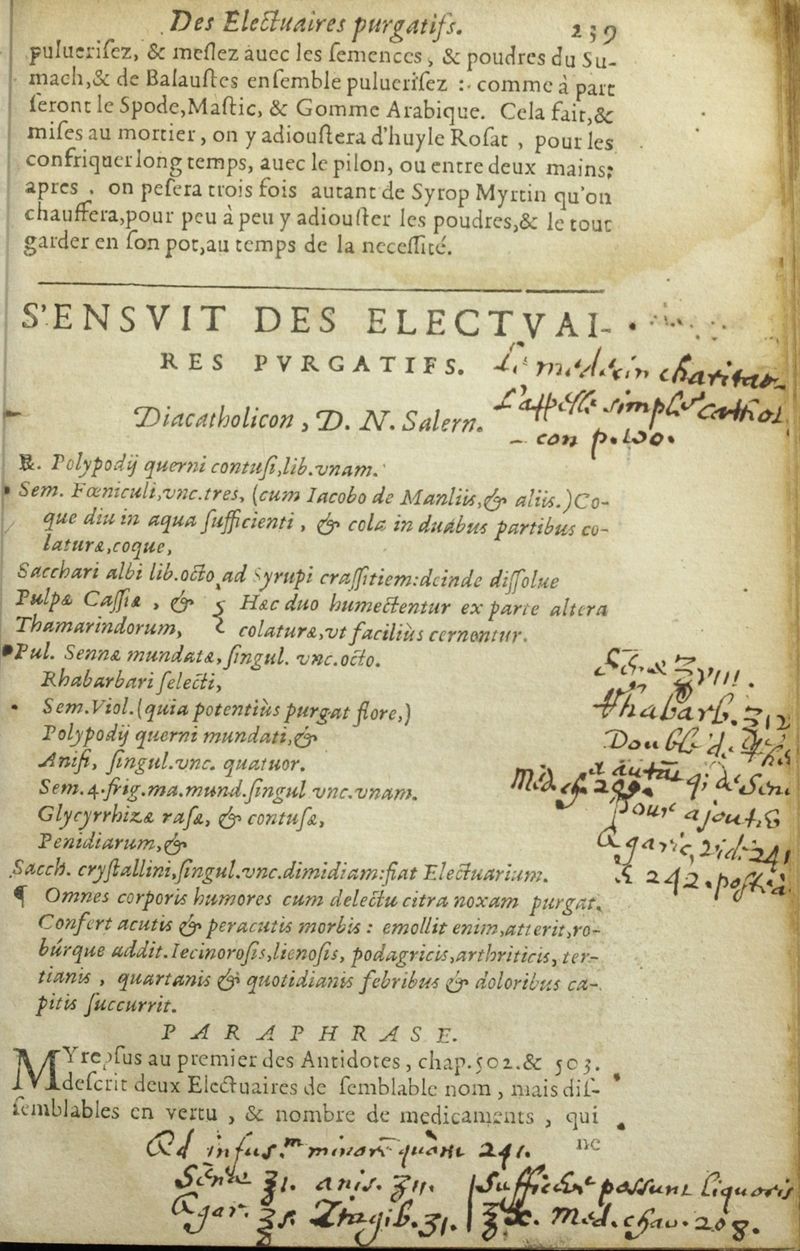 Des Electuaires purgatifs. 239
puluerisez, & meslez auec les semences, & poudres du Su-
mach,& de Balaustes ensemble puluerisez : comme à part
seront le Spode,Mastic, & Gomme Arabique. Cela fait,&
mises au mortier, on y adioustera d'huyle Rosat , pour les
confriquer long temps, auec le pilon, ou entre deux mains;
apres , on pesera trois fois autant de Syrop Myrtin qu'on
chauffera,pour peu à peu y adiouster les poudres,& le tout
garder en son pot,au temps de la necessité.
S'ENSVIT DES ELECTVAI-
RES PVRGATIFS.
Le medecin charitab.
l'appelle simplet cathol
Diacatholicon , D. N. Salern.
con p. 100.
℞. Polypodij querni contusi,lib.vnam.
Sem. Fœniculi,vnc.tres, (cum Iacobo de Manliis,& aliis.)Co-
que diu in aqua sufficienti , & cola in duabus partibus co-
laturæ,coque,
Sacchari albi lib.octo,ad Syrupi crassitiem:deinde dissolue
Pulpæ Cassiæ , & Hæc duo humectentur ex parte altera
Thamarindorum, colaturæ,vt facilius cernontur.
Pul. Sennæ mundatæ,singul. vnc.octo.
Rhabarbari selecti,
Sem.Viol.(quia potentius purgat flore,)
Polypodij querni mundati,&
Anisi, singul.vnc. quatuor.
Sem.4.frig.ma.mund.singul vnc.vnam.
Glycyrrhizæ rasæ, & contusæ,
Penidiarum,&
Sacch. crystallini,singul.vnc.dimidiam:fiat Electuarium.
rhabarb. ʒ12
pour ajout.
agaric, vid. 241
& 242. postea
¶ Omnes corporis humores cum delectu citra noxam purgat.
Confert acutis & peracutis morbis : emollit enim,atterit,ro-
búrque addit.Iecinorosis,lienosis, podagricis,arthriticis, ter-
tianis , quartanis & quotidianis febribus & doloribus ca-
pitis succurrit.
PARAPHRASE.
MYrepsus au premier des Antidotes, chap.502.& 503.
descrit deux Electuaires de semblable nom , mais dis-
semblables en vertu , & nombre de medicaments , qui
ne
Ad infus. 241.
ʒ1. anis. ʒ11. sufficient possunt liquoris
agar. ʒ1. Med. char. 208.